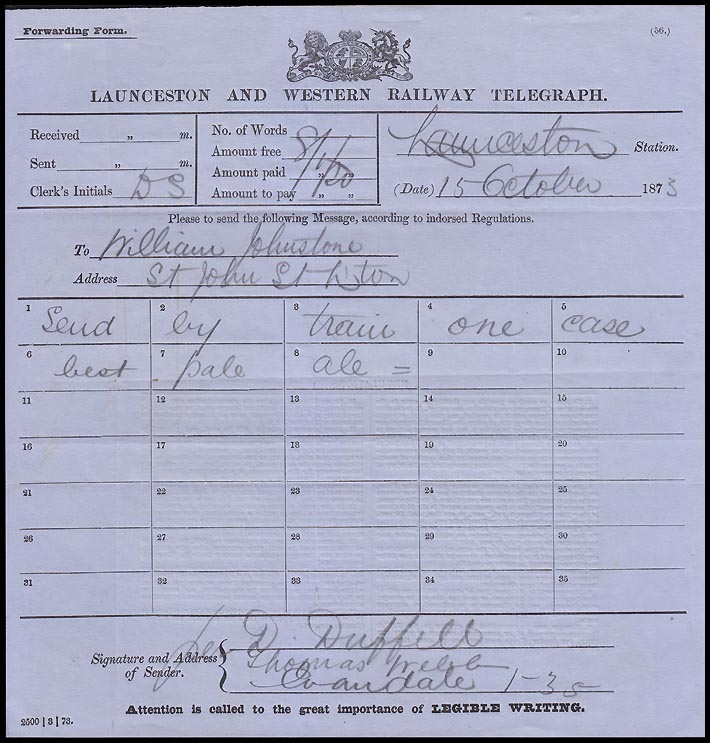 Forwarding Form. (56.)
LAUNCESTON AND WESTERN RAILWAY TELEGRAPH.
Received „ m.
Sent „ m.
Clerk's Initials DS
No. of Words 8
Amount free
Amount paid „ „
Amount to pay „ „
Launceston Station.
(Date) 15 October 1873
Please to send the following Message, according to indorsed Regulations.
To William Johnstone
Address St John St L'ston
1 Send 2 by 3 train 4 one 5 case
6 best 7 pale 8 ale = 9 10
11 12 13 14 15
16 17 18 19 20
21 22 23 24 25
26 27 28 29 30
31 32 33 34 35
Signature and Address of Sender.
D. Duffell
Thomas Welsh
Evandale 1-35
Attention is called to the great importance of LEGIBLE WRITING.
2500 | 3 | 73.